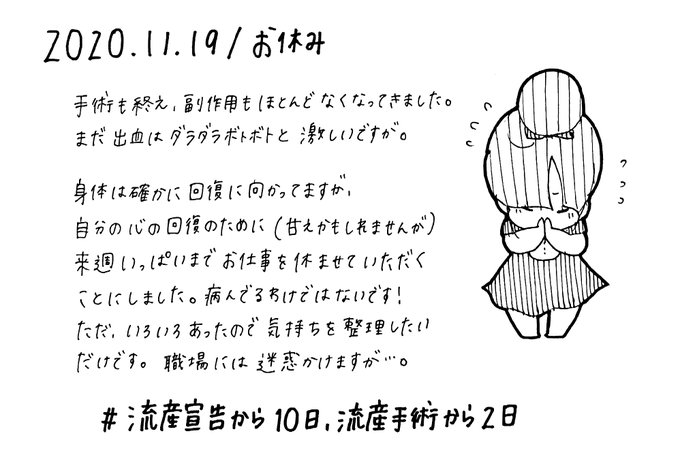 2020.11.19/お休み
手術も終え、副作用もほとんどなくなってきました。
まだ出血はダラダラボトボトと激しいですが。
身体は確かに回復に向かってますが、
自分の心の回復のために(甘えかもしれませんが)
来週いっぱいまでお仕事を休ませていただく
ことにしました。病んでるわけではないです!
ただ、いろいろあったので気持ちを整理したい
だけです。職場には迷惑かけますが…。
#流産宣告から10日、流産手術から2日